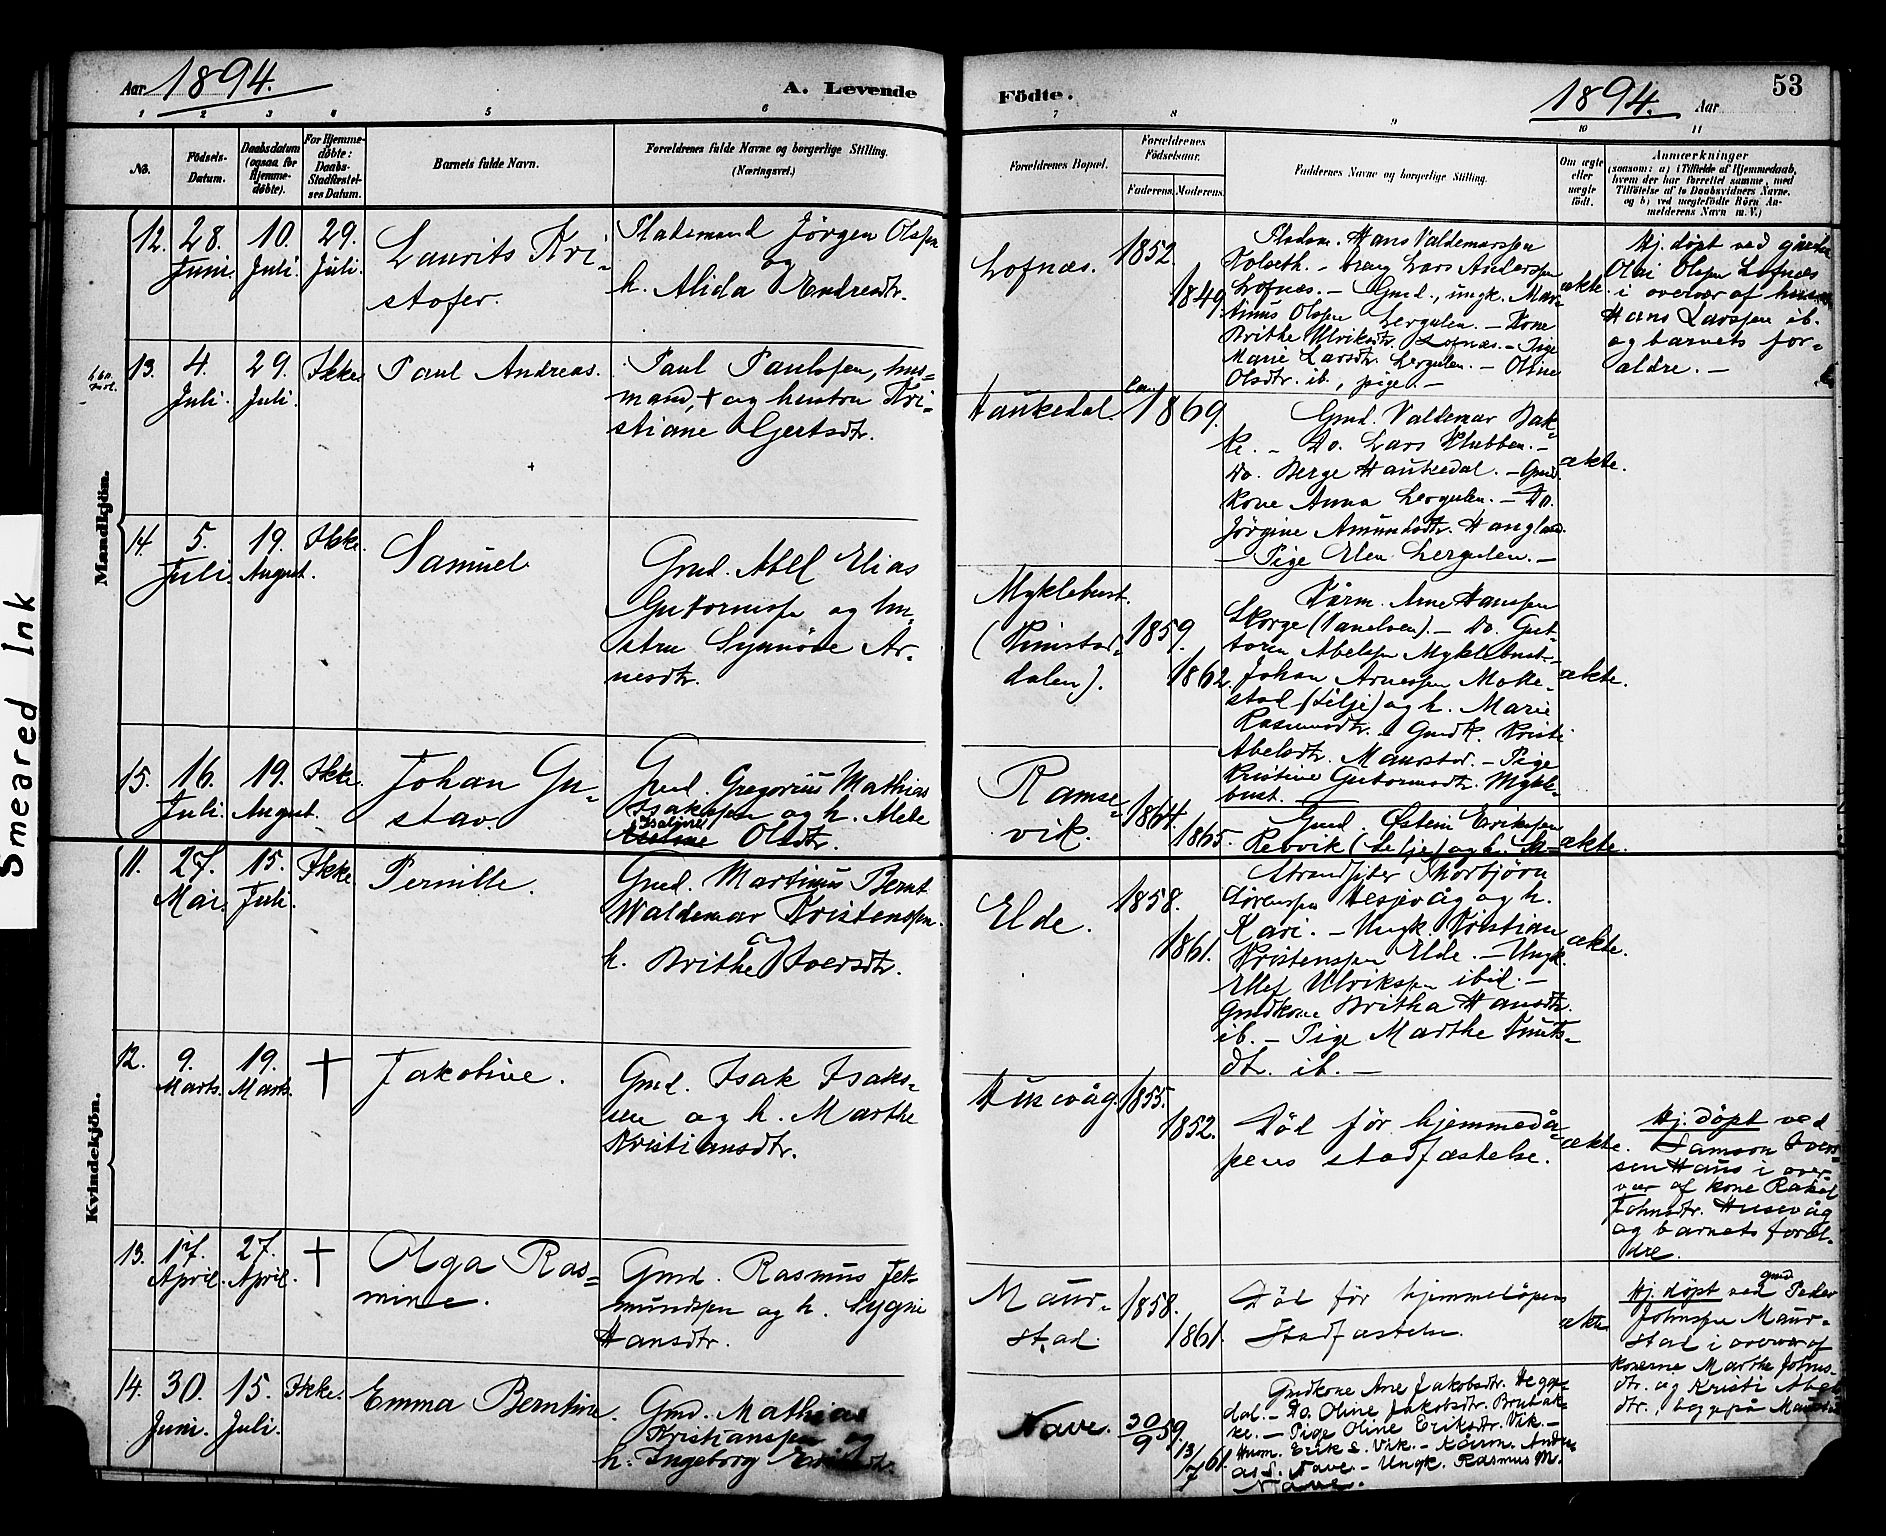 Smeared Ink
Aar 1894.
A. Levende
Födte.
1894. Aar
53
1 2 3 4 5 6 7 8 9 10 11
No.
Födsels-
Datum.
Daabsdatum
(ogsaa for
Hjemme-
döbte).
For Hjemme-
döbte:
Daabs-
Stadfæstel-
ses Datum.
Barnets fulde Navn.
Forældrenes fulde Navne og borgerlige Stilling.
(Næringsvei.)
Forældrenes Bopæl.
Forældrenes
Födselsaar.
Faderens. Moderens.
Faddernes Navne og borgerlige Stilling.
Om ægte
eller
uægte
födt.
Anmærkninger
(saasom: a) i Tilfælde af Hjemmedaab,
hvem der har forrettet samme, med
Tilföielse af to Daabsvidners Navne,
og b) ved uægtefödte Börn An-
melderens Navn m. V.)
Mandkjön.
12. 28. Juni. 10. Juli. 29. Juli.
Laurits Kri-
stofer.
Pladsmand Jørgen Olssen
og
h. Alida Endresdtr.
Lofnæs. 1852. 1849.
Pladsm. Hans Valdemarssen
Lars Anderssen
Lofnæs. – Gmd., ungk. Mar-
tinus Olssen Lergulen. – Kone
Brithe Ulriksdtr. Lofnæs. – Pige
Marie Larsdtr. Lergulen. – Oline
Olsdtr. ib., pige. –
ækte.
Hj. døpt ved
Olai Olssen Lofnæs
i overvær af
Hans Larssen ib.
og barnets for-
ældre. –
13. 4. Juli. 29. Juli. Ikke.
Paul Andreas.
Paul Paulssen, hus-
mand, + og hustru Kri-
stiane Gjertsdtr.
Haukedal. 1869.
Gmd. Valdemar Bak-
ke. – Do. Lars Stubben. –
Do. Berge Haukedal. – Gmd.
kone Anna Lergulen. – Do.
Jørgine Amundsdtr. Hangland.
– Pige Elen Lergulen. –
ækte.
14. 5. Juli. 19. August. Ikke.
Samuel
Gmd. Abel Elias
Guttormssen og hu-
stru Synnøve Ar-
nesdtr.
Myklebust.
dalen). 1859. 1862.
Kårm. Arne Hanssen
Skorge – Do. Gut-
torm Abelssen Myklebust. –
Johan Arnessen Moke-
stad (Selje) og h. Marie
Rasmusdtr. – Gmdk. Kristi
Abelsdtr. Maurstad. – Pige
Kristine Guttormsdtr. Mykle-
bust.
ækte.
15. 16. Juli. 19. August. Ikke.
Johan Gu-
stav.
Gmd. Gregorius Mathias
Isakssen og h. Mele
Olsdtr.
Ramse-
vik. 1864. 1865.
Gmd. Østein Erikssen
Rebvik (Selje) og h.
ækte.
Kvindekjön.
11. 27. Mai. 15. Juli. Ikke
Pernille.
Gmd. Martinus Bernt
Waldemar Kristenssen.
og
h. Brithe Iversdtr.
Elde. 1858. 1861.
Strandsitter Thorbjørn
Sørenssen Hesjevåg og h.
Kari. – Ungk. Kristian
Kristenssen Elde. – Ungk.
Ellef Ulrikssen ibid. –
Gmdkone Britha Hansdtr.
ib. – Pige Marthe Knuts-
dtr. ib. –
ækte.
12. 9. Marts. 19. Marts. +
Jakobine.
Gmd. Isak Isaks-
sen og h. Marthe
Kristiansdtr.
Husevåg. 1855. 1852.
Död før hjemmedå-
pens stadfæstelse.
ækte.
Hj. døpt ved
Samson Ivers-
sen Haus i over-
vær af kone Rakel
Johnsdtr. Husevåg
og barnets foræl-
dre.
13. 17. April. 27. April. +
Olga Ras-
mine.
Gmd. Rasmus Jet-
mundssen og h. Sygni
Hansdtr.
Maur-
stad. 1858. 1861.
Död før hjemmedåpens
Stadfæstelse.
ækte
Hj. døpt ved gmd Peder
Johnssen Maur-
stad i overvær af
konerne Marthe Johns-
dtr. og Kristi Abels-
dtr., begge på Maurstad
14. 30. Juni. 15. Juli. Ikke.
Emma Berntine.
Gmd. Mathias
Kristianssen og
h. Ingeborg
Nave. 30/9 59. 13/7 61.
Gmdkone Ane Jakobsdtr. Hegge-
dal. – Do. Oline Jakobsdtr.
ke. – Pige Oline Eriksdtr. Vik. –
Husm. Erik S. Vik. – Kårm. Andre-
as S. Nave. – Ungk. Rasmus M.
Nave.